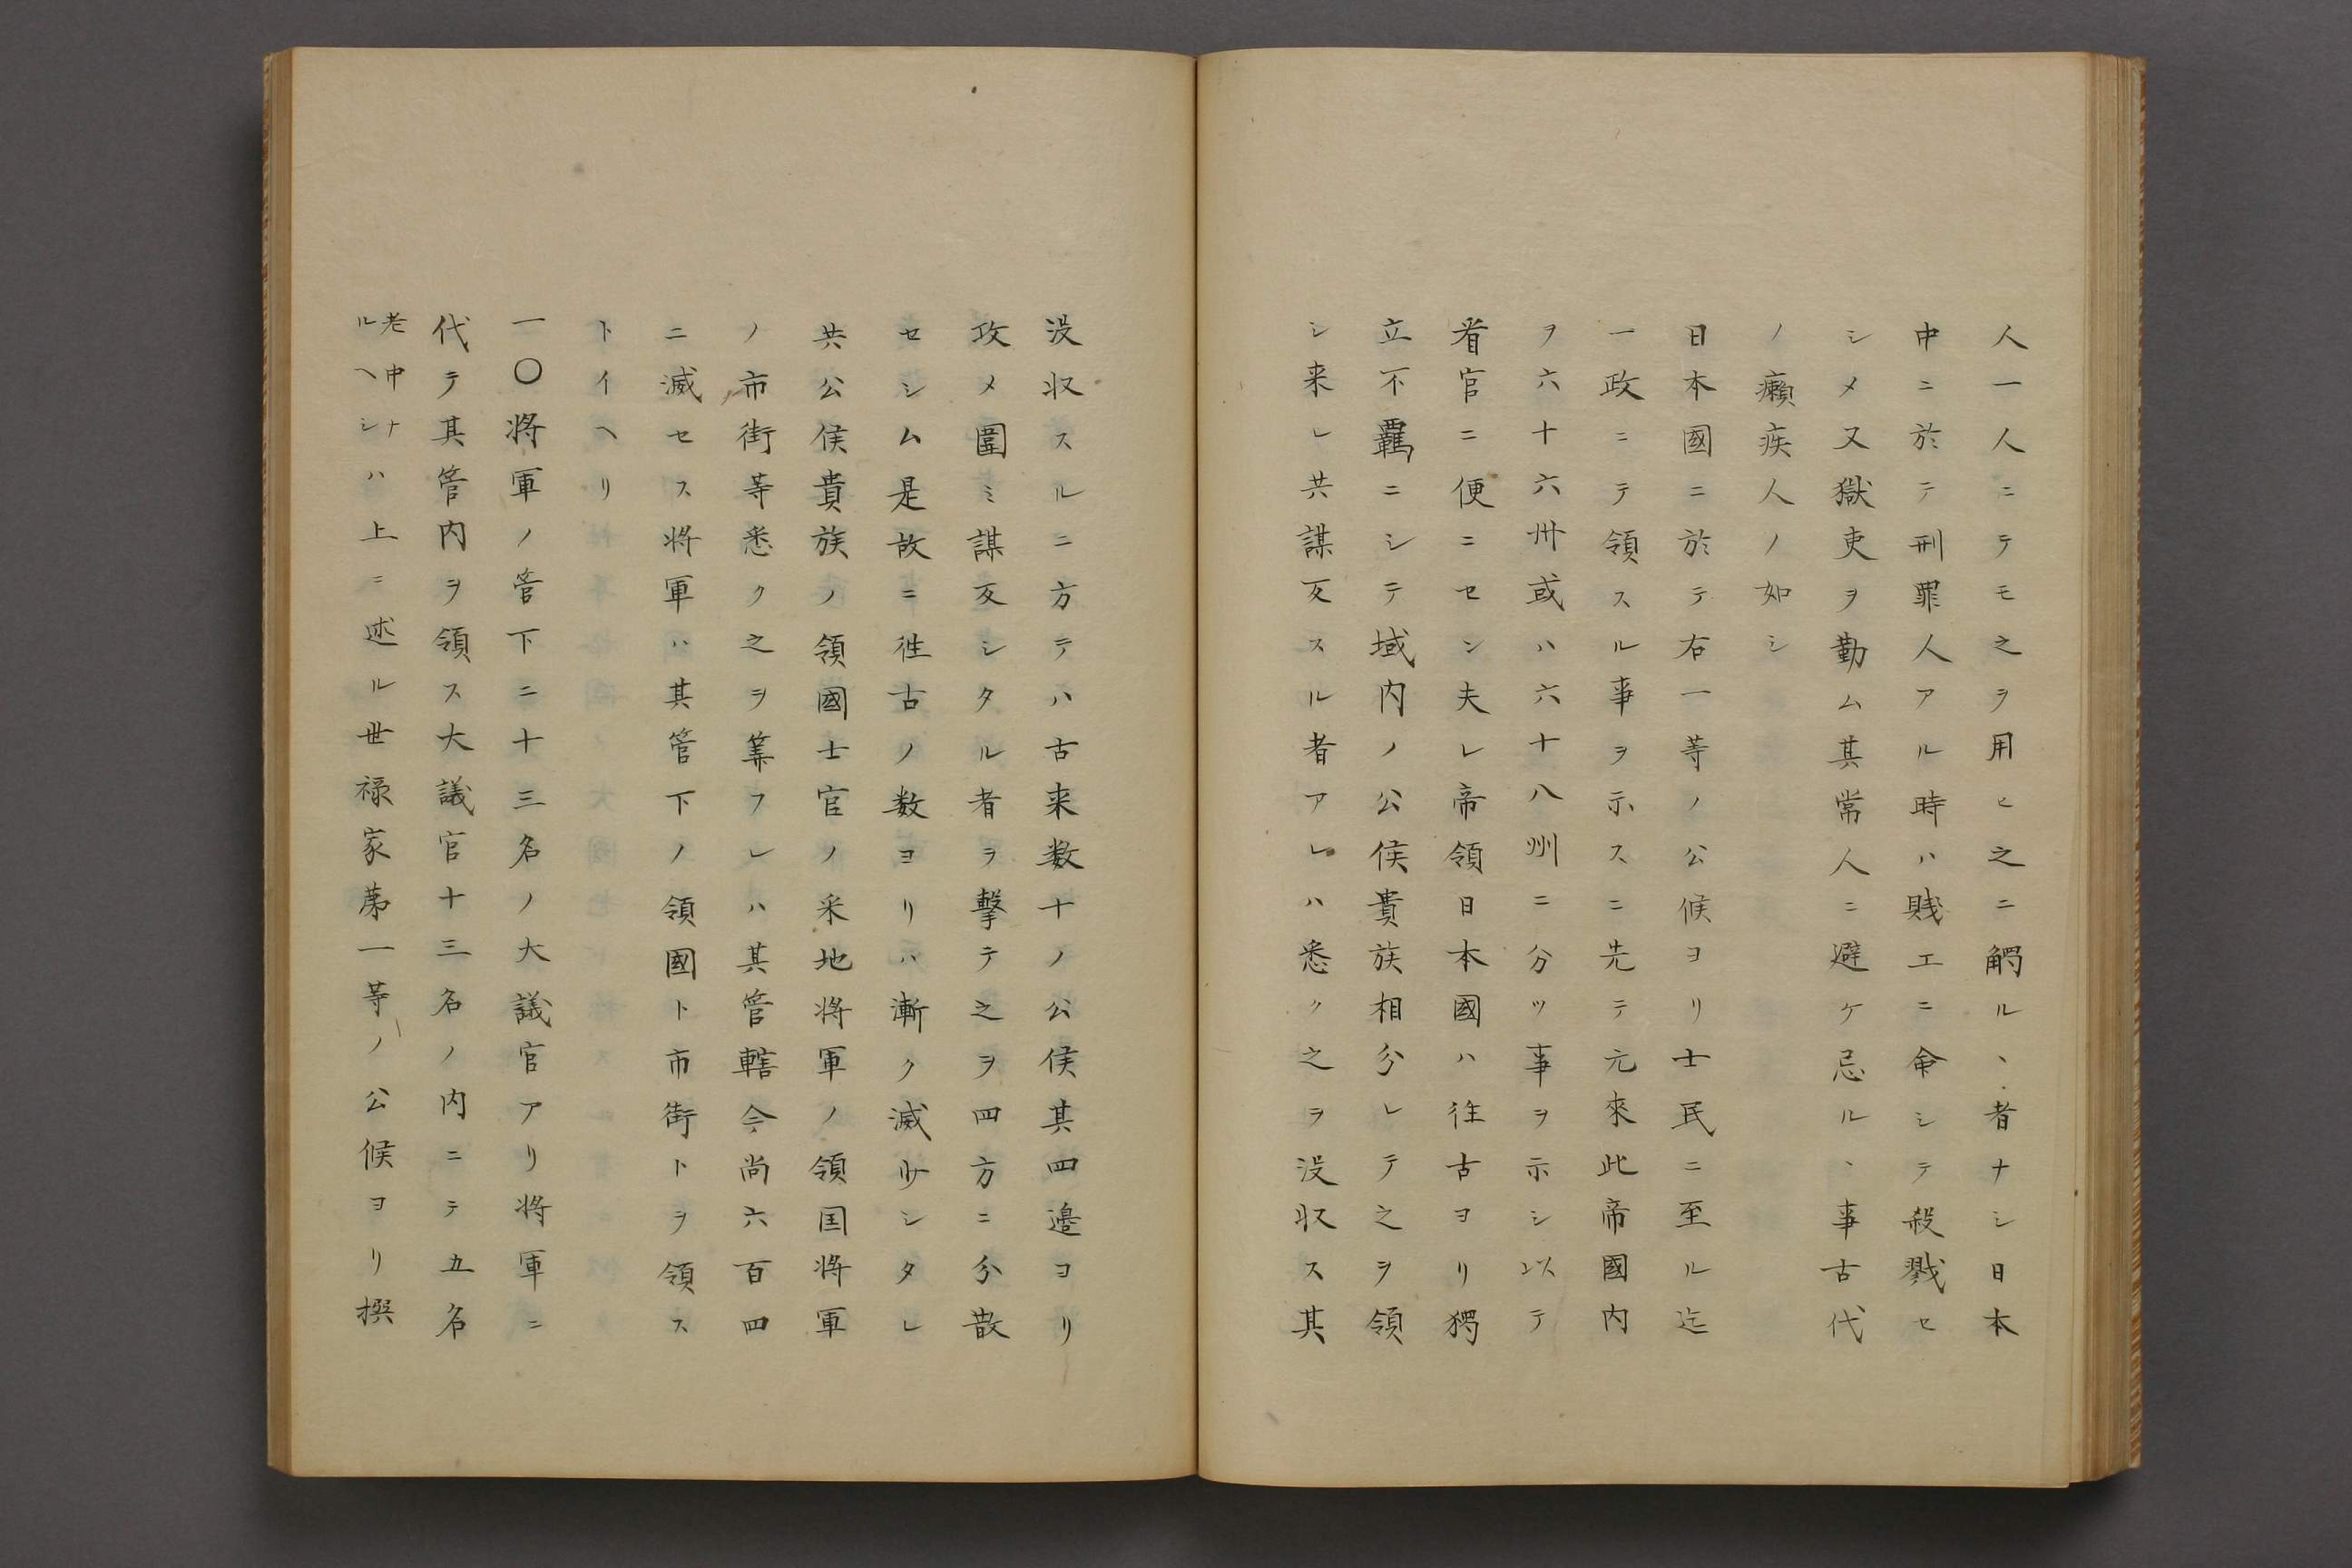 人一人ニテモ之ヲ用ヒ之ニ觸ルヽ者ナシ日本
中ニ於テ刑罪人アル時ハ賤工ニ命シテ殺戮セ
シメ又獄吏ヲ勤ム其常人ニ避ケ忌ルヽ事古代
ノ癩疾人ノ如シ
日本國ニ於テ右一等ノ公候ヨリ士民ニ至ル迄
一政ニテ領スル事ヲ示スニ先テ元來此帝國内
ヲ六十六州或ハ六十八州ニ分ツ事ヲ示シ以テ
看官ニ便ニセン夫レ帝領日本國ハ往古ヨリ獨
立不羈ニシテ域内ノ公侯貴族相分レテ之ヲ領
シ来レ共謀反スル者アレハ悉ク之ヲ没収ス其
没収スルニ方テハ古来数十ノ公侯其四邉ヨリ
攻メ圍ミ謀反シタル者ヲ撃テ之ヲ四方ニ分散
セシム是故ニ徃古ノ数ヨリハ漸ク減少シタレ
共公侯貴族ノ領國士官ノ采地将軍ノ領国将軍
ノ市街等悉ク之ヲ筭フレハ其管轄今尚六百四
ニ減セス将軍ハ其管下ノ領國ト市街トヲ領ス
トイヘリ
一〇将軍ノ管下ニ十三名ノ大議官アリ将軍ニ
代テ其管内ヲ領ス大議官十三名ノ内ニテ五名
老中ナルヘシハ上ニ述ル世禄家第一等ノ公候ヨリ撰